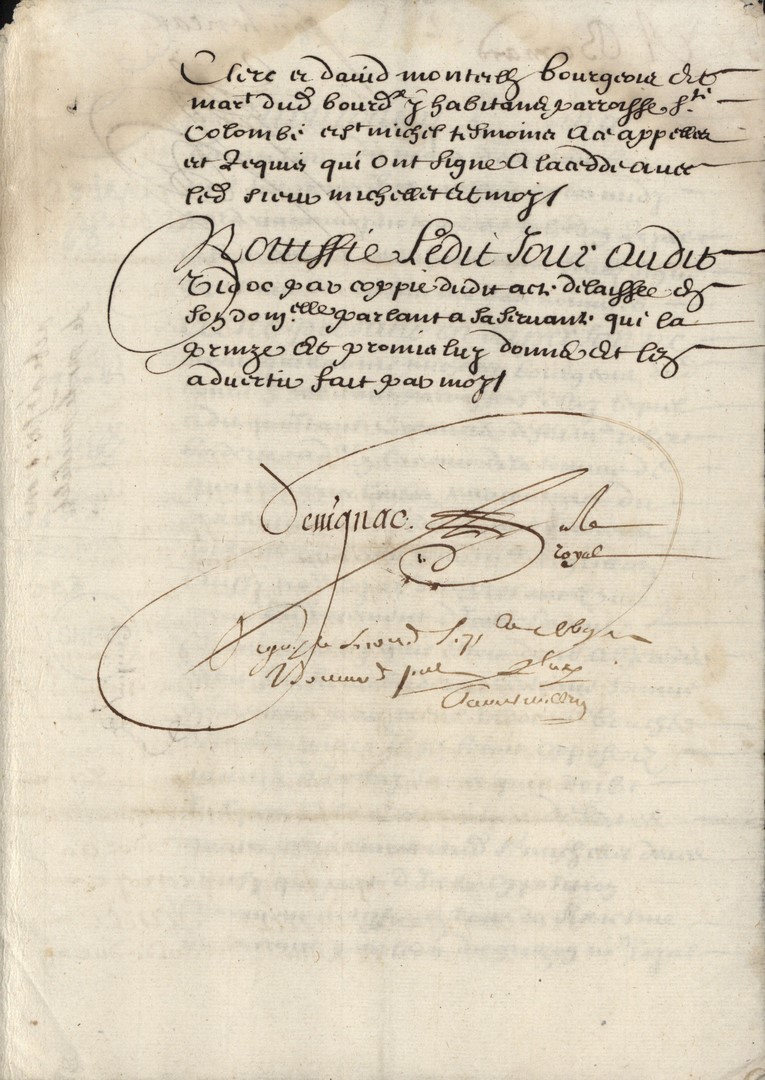 Clerc et david monteilh bourgeois et
mart dud bourdx y habitans parroisse Ste
Colombe et st michel tesmoins a ce appelles
et Requis qui ont signe a la cedde avec
led sieur michellet et moy
Nottiffie Ledit Jour audit
Vidoc par coppie dudit acte delaissee en
son domelle parlant a sa servante qui la
prinze et promis luy donner et len
advertir fait par moy
Devignac. nore
royal